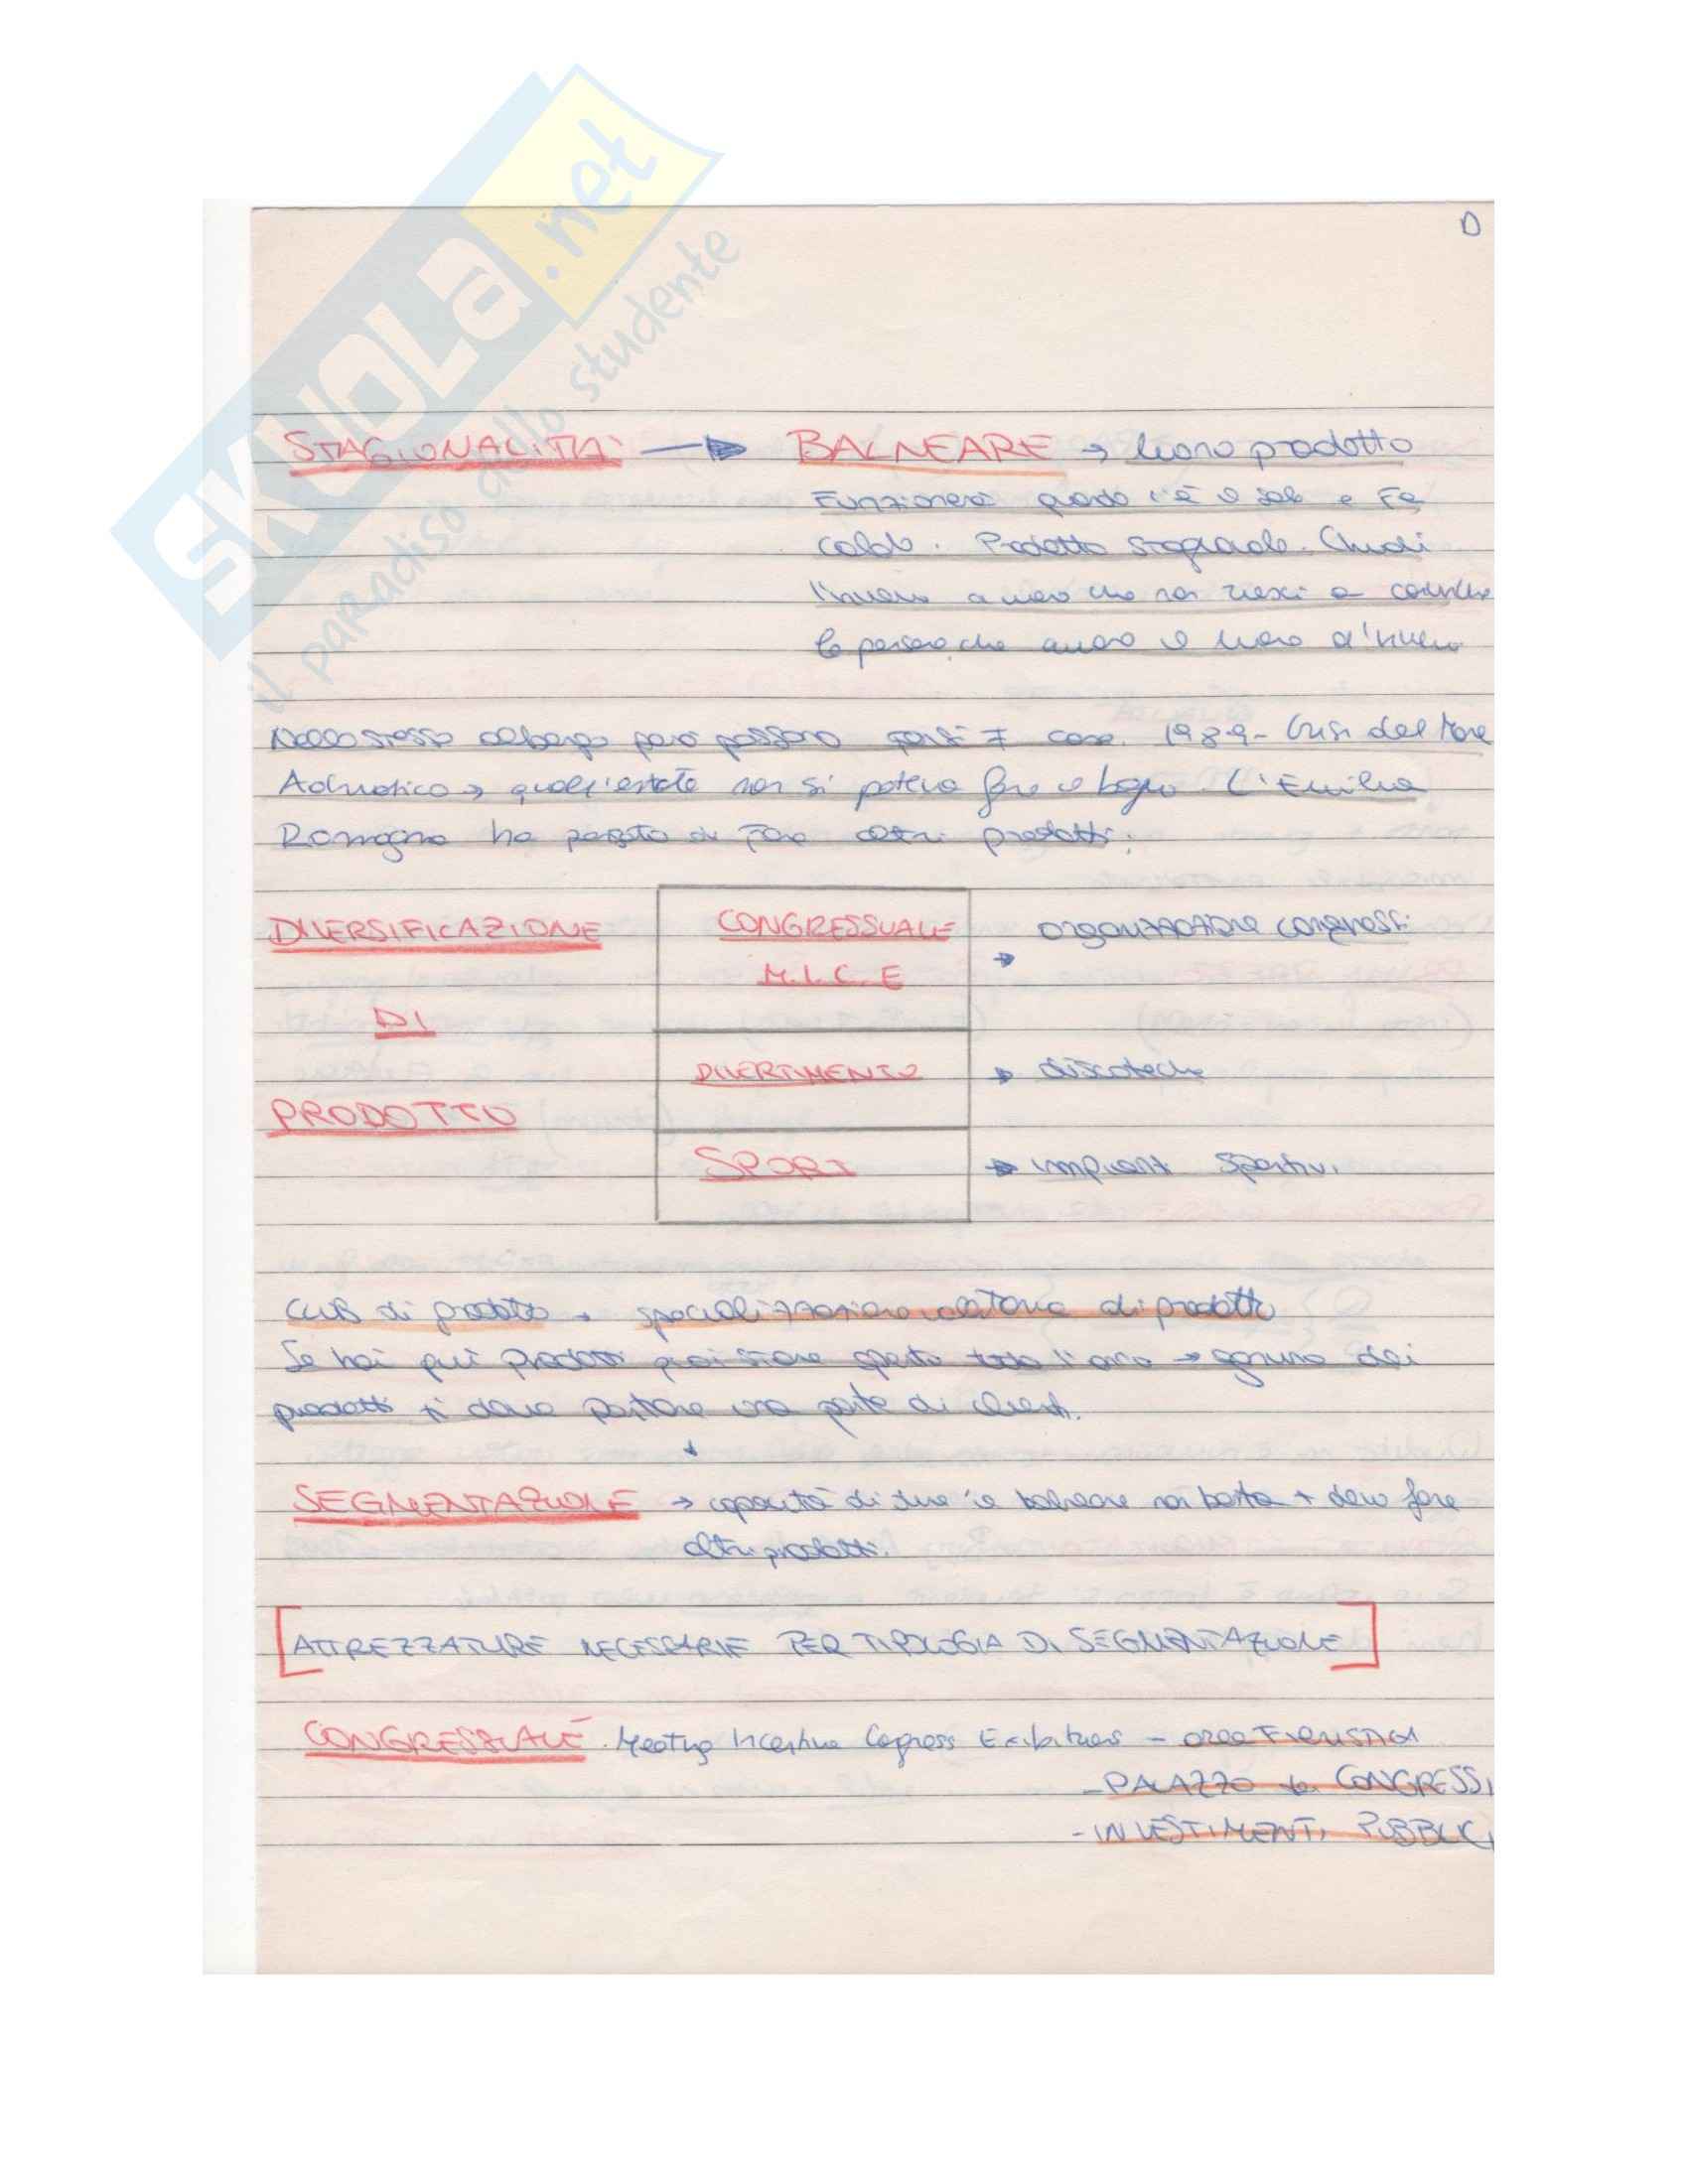 SKUOLA.net
il paradiso dello studente
STAGIONALITÀ → BALNEARE → buono prodotto
Funzionerà quando c'è il sole e fa
caldo. Prodotto stagionale. Chiudi
l'inverno a meno che non riesci a
le persone che amano il mare d'inverno
Nello stesso albergo però possono 7 cose. 1989 - Crisi del Mare
Adriatico → quell'estate non si poteva fare il bagno. L'Emilia
Romagna ha pensato di fare altri prodotti:
DIVERSIFICAZIONE DI PRODOTTO
CONGRESSUALE M.I.C.E → organizzazione congressi
DIVERTIMENTO → discoteche
SPORT → impianti sportivi
Club di prodotto → specializzazione di prodotto
Se hai più prodotti puoi stare aperto tutto l'anno → ognuno dei
prodotti ti deve portare una parte di clienti.
SEGMENTAZIONE → capacità di dire il balneare non basta + devo fare
altri prodotti.
[ATTREZZATURE NECESSARIE PER TIPOLOGIA DI SEGMENTAZIONE]
CONGRESSUALE Meeting Incentive Congress Exibitions - area FIERISTICA
- PALAZZO dei CONGRESSI
- INVESTIMENTI PUBBLICI